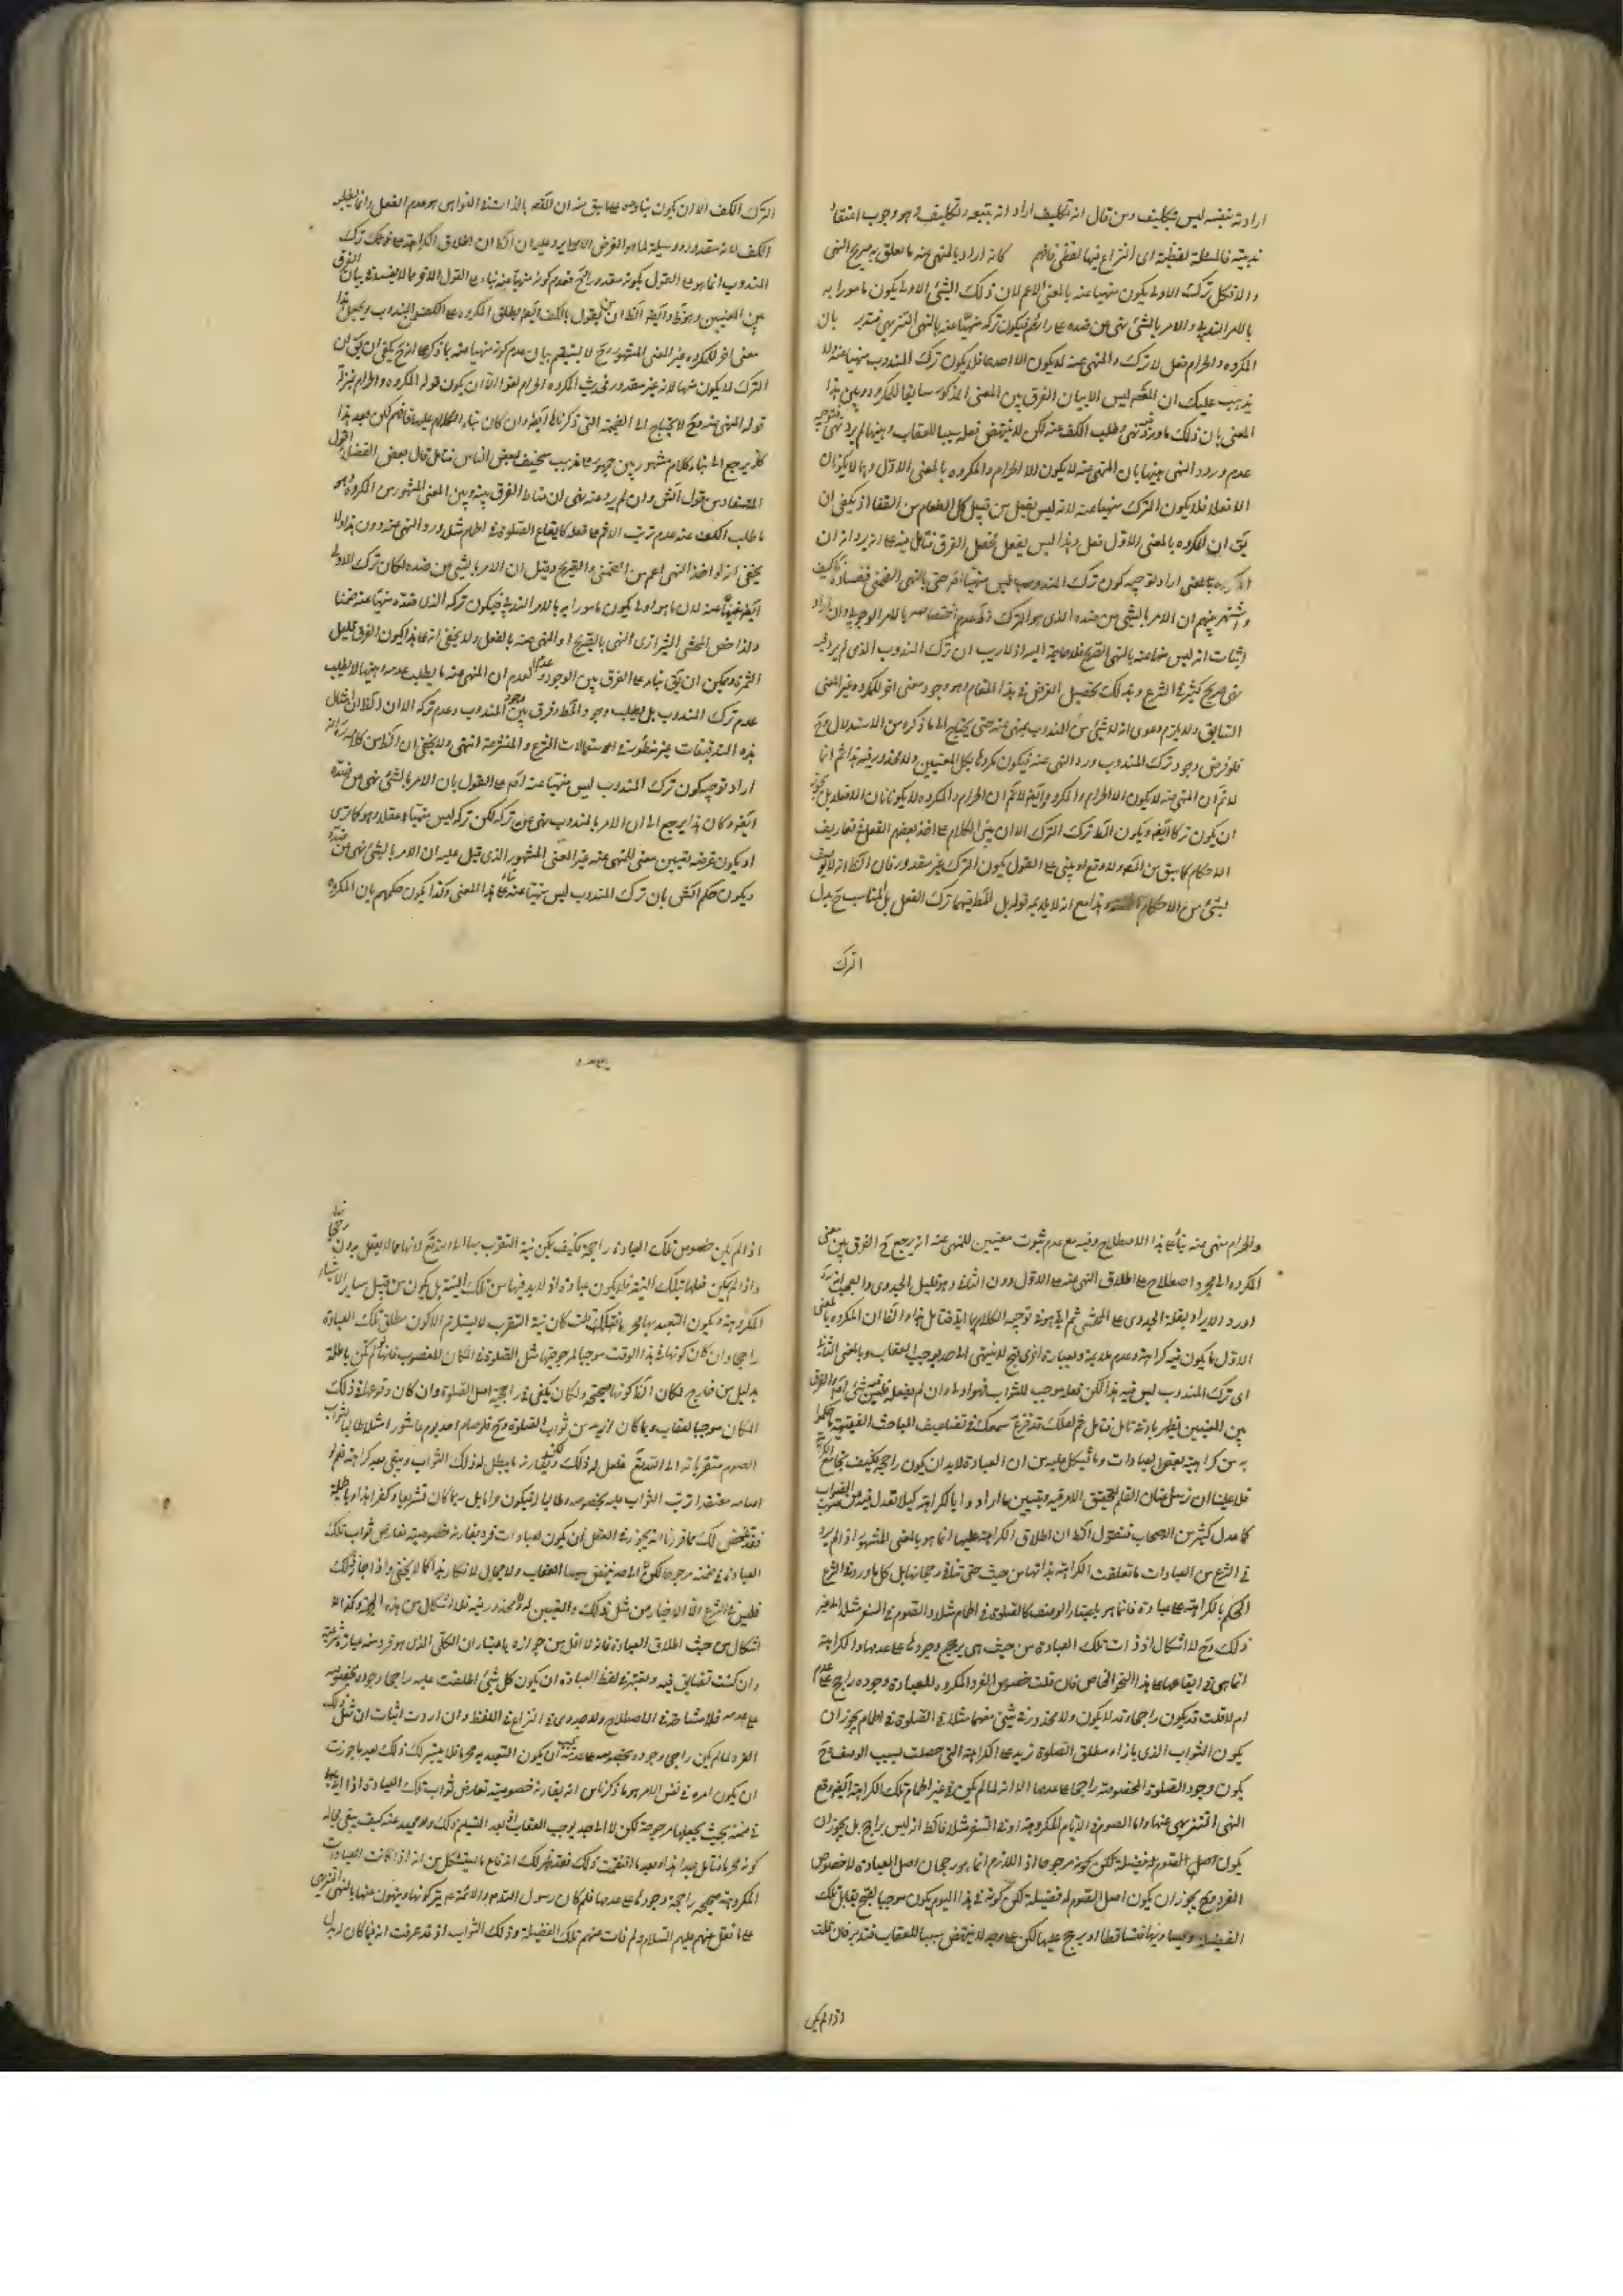 ارادته بنفسه ليس بتكليف ومن قال انه تكليف اراد انه يتبعه وتكليف وهو وجوب اعتقاد
ندبيته فالمسئلة لفظية اى النزاع فيها لفظى فافهم كانه اراد بالمنهى عنه ما تعلق به صريح النهى
والا فكل ترك الاولى يكون منهيا عنه بالمعنى الاعم لان ذلك الشئ الاولى يكون مامورا به
بالامر الندبى والامر بالشئ نهى عن ضده على رائهم فيكون تركه منهيا عنه بالنهى التنزيهى فتدبر بان
المكروه والحرام فعل لا ترك والمنهى عنه لا يكون الا احدهما فلا يكون ترك المندوب منهيا عنه لا
يذهب عليك ان المقصد ليس الا بيان الفرق بين المعنى المذكور سابقا للمكروه وبين هذا
المعنى بان ذلك ما ورد فيه نهى وطلب الكف عنه لكن لا ينتهض فعله سببا للعقاب وهيهنا لم يرد نهى
عدم ورود النهى هيهنا بان المنهى عنه لا يكون الا الحرام والمكروه بالمعنى الاول وهما لا يكونان
الا فعلا فلا يكون الترك منهيا عنه لانه ليس بفعل من قبيل كل الطعام من القفا اذ يكفى ان
يق ان المكروه بالمعنى الاول فعل وهذا ليس بفعل فحصل الفرق فتامل فيه على انه يرد انه ان
اراد توجيه كون ترك المندوب ليس منهيا عنه حتى بالنهى الضمنى ففساده
واشتهر بينهم ان الامر بالشئ نهى عن ضده الذى هو الترك
اثبات انه ليس منهيا عنه بالنهى الصريح فلا حاجة اليه اذ لا ريب ان ترك المندوب الذى لم يرد فيه
نهى صريح كثير فى الشرع وبذلك يحصل الغرض فى هذا المقام وهو وجود معنى اخر للمكروه غير المعنى
السابق ولا يلزم دعوى انه لا شئ من المندوب بمنهى عنه حتى يحتاج الى ما ذكره من الاستدلال وح
فلو فرض وجود ترك المندوب ورد النهى عنه فيكون مكروها بكل المعنيين ولا محذور فيه هذا ثم انا
لا نم ان المنهى عنه لا يكون الا الحرام والمكروه وايضا لا نم ان الحرام والمكروه لا يكونان الا فعلا بل
ان يكون تركا ايضا ويكون الترك الا ان يبنى الكلام على اخذ بعضهم الفعل فى تعاريف
الاحكام كما سبق من المص ولا وقع او يبنى على القول بكون الترك غير مقدور فان الظ انه لا
بشئ من الاحكام هذا مع انه لا يلائمه قوله بل المط فيهما ترك الفعل بل المناسب ح بدل
الترك
الترك الكف الا ان يكون بناؤه على ما سبق منه ان المقصد بالذات فى النواهى هو عدم الفعل وانما يطلب
الكف لانه مقدور ووسيلة لما هو الغرض الاصلى ويرد عليه ان الظ ان اطلاق الكراهة على ترك
المندوب انما هو على القول بكونه مقدورا
من المعنيين وايضا الظ ان من يقول بالكف ايضا يطلق المكروه على الكف عن المندوب ويجعل هذا
معنى اخر للمكروه غير المعنى المشهور وح لا يستقيم بيان عدم كونه منهيا عنه بما ذكر
الترك لا يكون منهيا لانه غير مقدور
قوله المنهى عنه وح لا يحتاج الى الضميمة التى ذكرناها ايضا وان كان بناء الكلام عليه فافهم لكن بعد هذا
كله يرجع الى بناء كلام مشهور بين الجمهور على مذهب سخيف لبعض الناس فتامل قال بعض الفضلاء اقول
المستفاد من قول الش وان لم يرد عنه نهى ان مناط الفرق بينه وبين المعنى المشهور من المكروه وهو
ما طلب الكف عنه عدم ترتب الاثم على فعله كايقاع الصلوة فى الحمام مثلا ورود النهى عنه دون هذا ولا
يخفى انه لو اخذ النهى اعم من الضمنى والصريح وقيل ان الامر بالشئ نهى عن ضده لكان ترك الاولى
ايضا منهيا عنه لان ما هو اولى يكون مامورا به بالامر الندبى فيكون تركه الذى ضده منهيا عنه ضمنا
ولذا خص المحشى الشيرازى النهى بالصريح او المنهى عنه بالفعل ولا يخفى انه على هذا يكون الفرق قليل
الثمرة ويمكن ان يق بناء على الفرق بين الوجود وعدم العدم ان المنهى عنه ما يطلب عدمه وهيهنا لا يطلب
عدم ترك المندوب بل يطلب وجوده فقط وفرق بين وجود المندوب وعدم تركه الا ان الظ ان امثال
هذه التدقيقات غير منظورة فى استعمالات الشرع والمتشرعة انتهى ولا يخفى ان الظ من كلامه انه
اراد توجيه كون ترك المندوب ليس منهيا عنه اص على القول بان الامر بالشئ نهى عن ضده
ايضا وكان هذا يرجع الى ان الامر بالمندوب نهى عن تركه لكن تركه ليس منهيا عنه وهو كما ترى
او يكون غرضه تعيين معنى للمنهى عنه غير المعنى المشهور الذى قيل عليه ان الامر بالشئ نهى عن ضده
ويكون حكم الش بان ترك المندوب ليس منهيا عنه بناء على هذا المعنى وكذا يكون حكمهم بان المكروه
والحرام منهى عنه بناء على هذا الاصطلاح وفيه مع عدم ثبوت معنيين للمنهى عنه انه يرجع ح الفرق بين معنى
المكروه الى مجرد اصطلاح على اطلاق النهى عنه على الاول دون الثانى وهو قليل الجدوى والعجب انه
اورد الايراد بقلة الجدوى على المحشى ثم
الاول ما يكون فيه كراهة وعدم ملايمة وبعبارة اخرى قبح لا ينتهى الى حد يوجب العقاب وبالمعنى الثانى
اى ترك المندوب ليس فيه هذا لكن فعله موجب للثواب فهو اولى وان لم يفعله فليس فيه شئ اص والفرق
بين المعنيين يظهر بادنى تامل فتامل ثم لعلك قد قرع سمعك فى تضاعيف المباحث الفقهية ما حكموا
به من كراهية بعض العبادات وما يشكل عليه من ان العبادة لا بد ان يكون راجحة فكيف يجامع الكراهة
فلا علينا ان نرسل عنان القلم لتحقيق الامر فيه ونبين ما ارادوا بالكراهة كيلا تعدل فيه عن صوب الصواب
كما عدل كثير من الصحاب فنقول الظ ان اطلاق الكراهة عليها انما هو بالمعنى المشهور اذ لم يرد
فى الشرع من العبادات ما تعلقت الكراهة بذاتها من حيث هى حتى ينافى رجحانها بل كل ما ورد فى الشرع
الحكم بالكراهة على عبادة فانما هو باعتبار الوصف كالصلوة فى الحمام مثلا والصوم فى السفر مثلا الى غير
ذلك وح لا اشكال اذ ذات تلك العبادة من حيث هى يرجح وجودها على عدمها والكراهة
انما هى فى ايقاعها على هذا النحو الخاص فان قلت خصوص الفرد المكروه للعبادة وجوده راجح على عدمه
ام لا قلت قد يكون راجحا وقد لا يكون ولا محذور فى شئ منهما مثلا فى الصلوة فى الحمام يجوز ان
يكون الثواب الذى بازاء مطلق الصلوة زيد على الكراهة التى حصلت بسبب الوصف وح
يكون وجود الصلوة المخصوصة راجحا على عدمها الا انه لما لم يكن فى غير الحمام تلك الكراهة ايضا وقع
النهى التنزيهى عنها واما الصوم فى الايام المكروهة او فى السفر مثلا فالظ انه ليس براجح بل يجوز ان
يكون اصل الصوم له فضيلة لكن كونه مرجوحا اذ اللازم انما هو رجحان اصل العبادة لا خصوص
الفرد وح يجوز ان يكون اصل الصوم له فضيلة لكن كونه فى هذا اليوم يكون موجبا لقبح يقابل تلك
الفضيلة ويساويها فتساقطا او يرجح عليها لكن على وجه لا ينتهض سببا للعقاب فتدبر فان قلت
اذا لم يكن
اذا لم يكن خصوص تلك العبادة راجحة فكيف يمكن نية التقرب بها الى الله تع لانها مما لا يعقل بدون رجحانها
واذا لم يمكن فعلها بتلك النية فلا يكون عبادة اذ لا بد فيها من تلك النية بل يكون من قبيل ساير الاشياء
المكروهة ويكون التعبد بها محرما قلت كان نية التقرب لا يستلزم الا كون مطلق تلك العبادة
راجحا وان كان كونها فى هذا الوقت موجبا لمرجوحيتها مثل الصلوة فى المكان المغصوب فانها لو لم تكن باطلة
بدليل من خارج لكان الظ كونها صحيحة ولكان يكفى فى راجحية اصل الصلوة وان كان وقوعها فى ذلك
المكان موجبا لعقاب ربما كان ازيد من ثواب الصلوة وح فلو صام احد يوم عاشور امثلا طالبا لثواب
الصوم متقربا به الى الله تع فلعل له ذلك ولكن يقارنه ما يبطل له ذلك الثواب ويبقى بعد كراهة فلو
صامه معتقدا ترتب الثواب عليه بخصوصه وطالبا له فيكون واثما بل ربما كان تشريعا وكفرا هذا وبالجملة
فقد تلخص لك مما قررنا انه يجوز فى العقل ان يكون لعبادات فرد يقارنه خصوصية تعارض ثواب تلك
العبادة فى ضمنه مرجوحا لكن لا الى حد ينتهض سببا للعقاب ولا مجال لانكار هذا كما لا يخفى واذا جاز ذلك
فليس فى الشرع الا الاخبار من مثل ذلك والتبيين له ولا محذور فيه فلا اشكال من هذه الجهة وكذا لا
اشكال من حيث اطلاق العبادة فانه لا اقل من جوازه باعتبار ان الكلى الذى هو فرد منه عبادة شرعية
وان كنت تضايق فيه وتعتبر فى لفظ العبادة ان يكون كل شئ اطلقت عليه راجحا وجوده بخصوصه
على عدمه فلا مشاحة فى الاصطلاح ولا جدوى فى النزاع فى اللفظ وان اردت اثبات ان مثل ذلك
الفرد لما لم يكن راجحا وجوده بخصوصه على عدمه فيجب ان يكون التعبد به محرما فلا يتيسر لك ذلك بعد ما جوزت
ان يكون امره فى نفس الامر هو ما ذكرناه من انه يقارنه خصوصية تعارض ثواب تلك العبادة
فى ضمنه بحيث يجعلها مرجوحة لكن لا الى حد يوجب العقاب اذ بعد التسليم ذلك ولا محيد عنه كيف يبقى مجال
كونه محرما فتامل جدا هذا وبعد ما اتقنت ذلك فقد ظهر لك اندفاع ما يستشكل من انه اذا كانت العبادات
المكروهة صحيحة راجحة وجودها على عدمها فلم كان رسول الله ص والائمة ع يتركونها وينهون عنها بالنهى التنزيهى
على ما نقل عنهم عليهم السلام ولم فات عنهم تلك الفضيلة وذلك الثواب اذ قد عرفت انه فيما كان له بدل